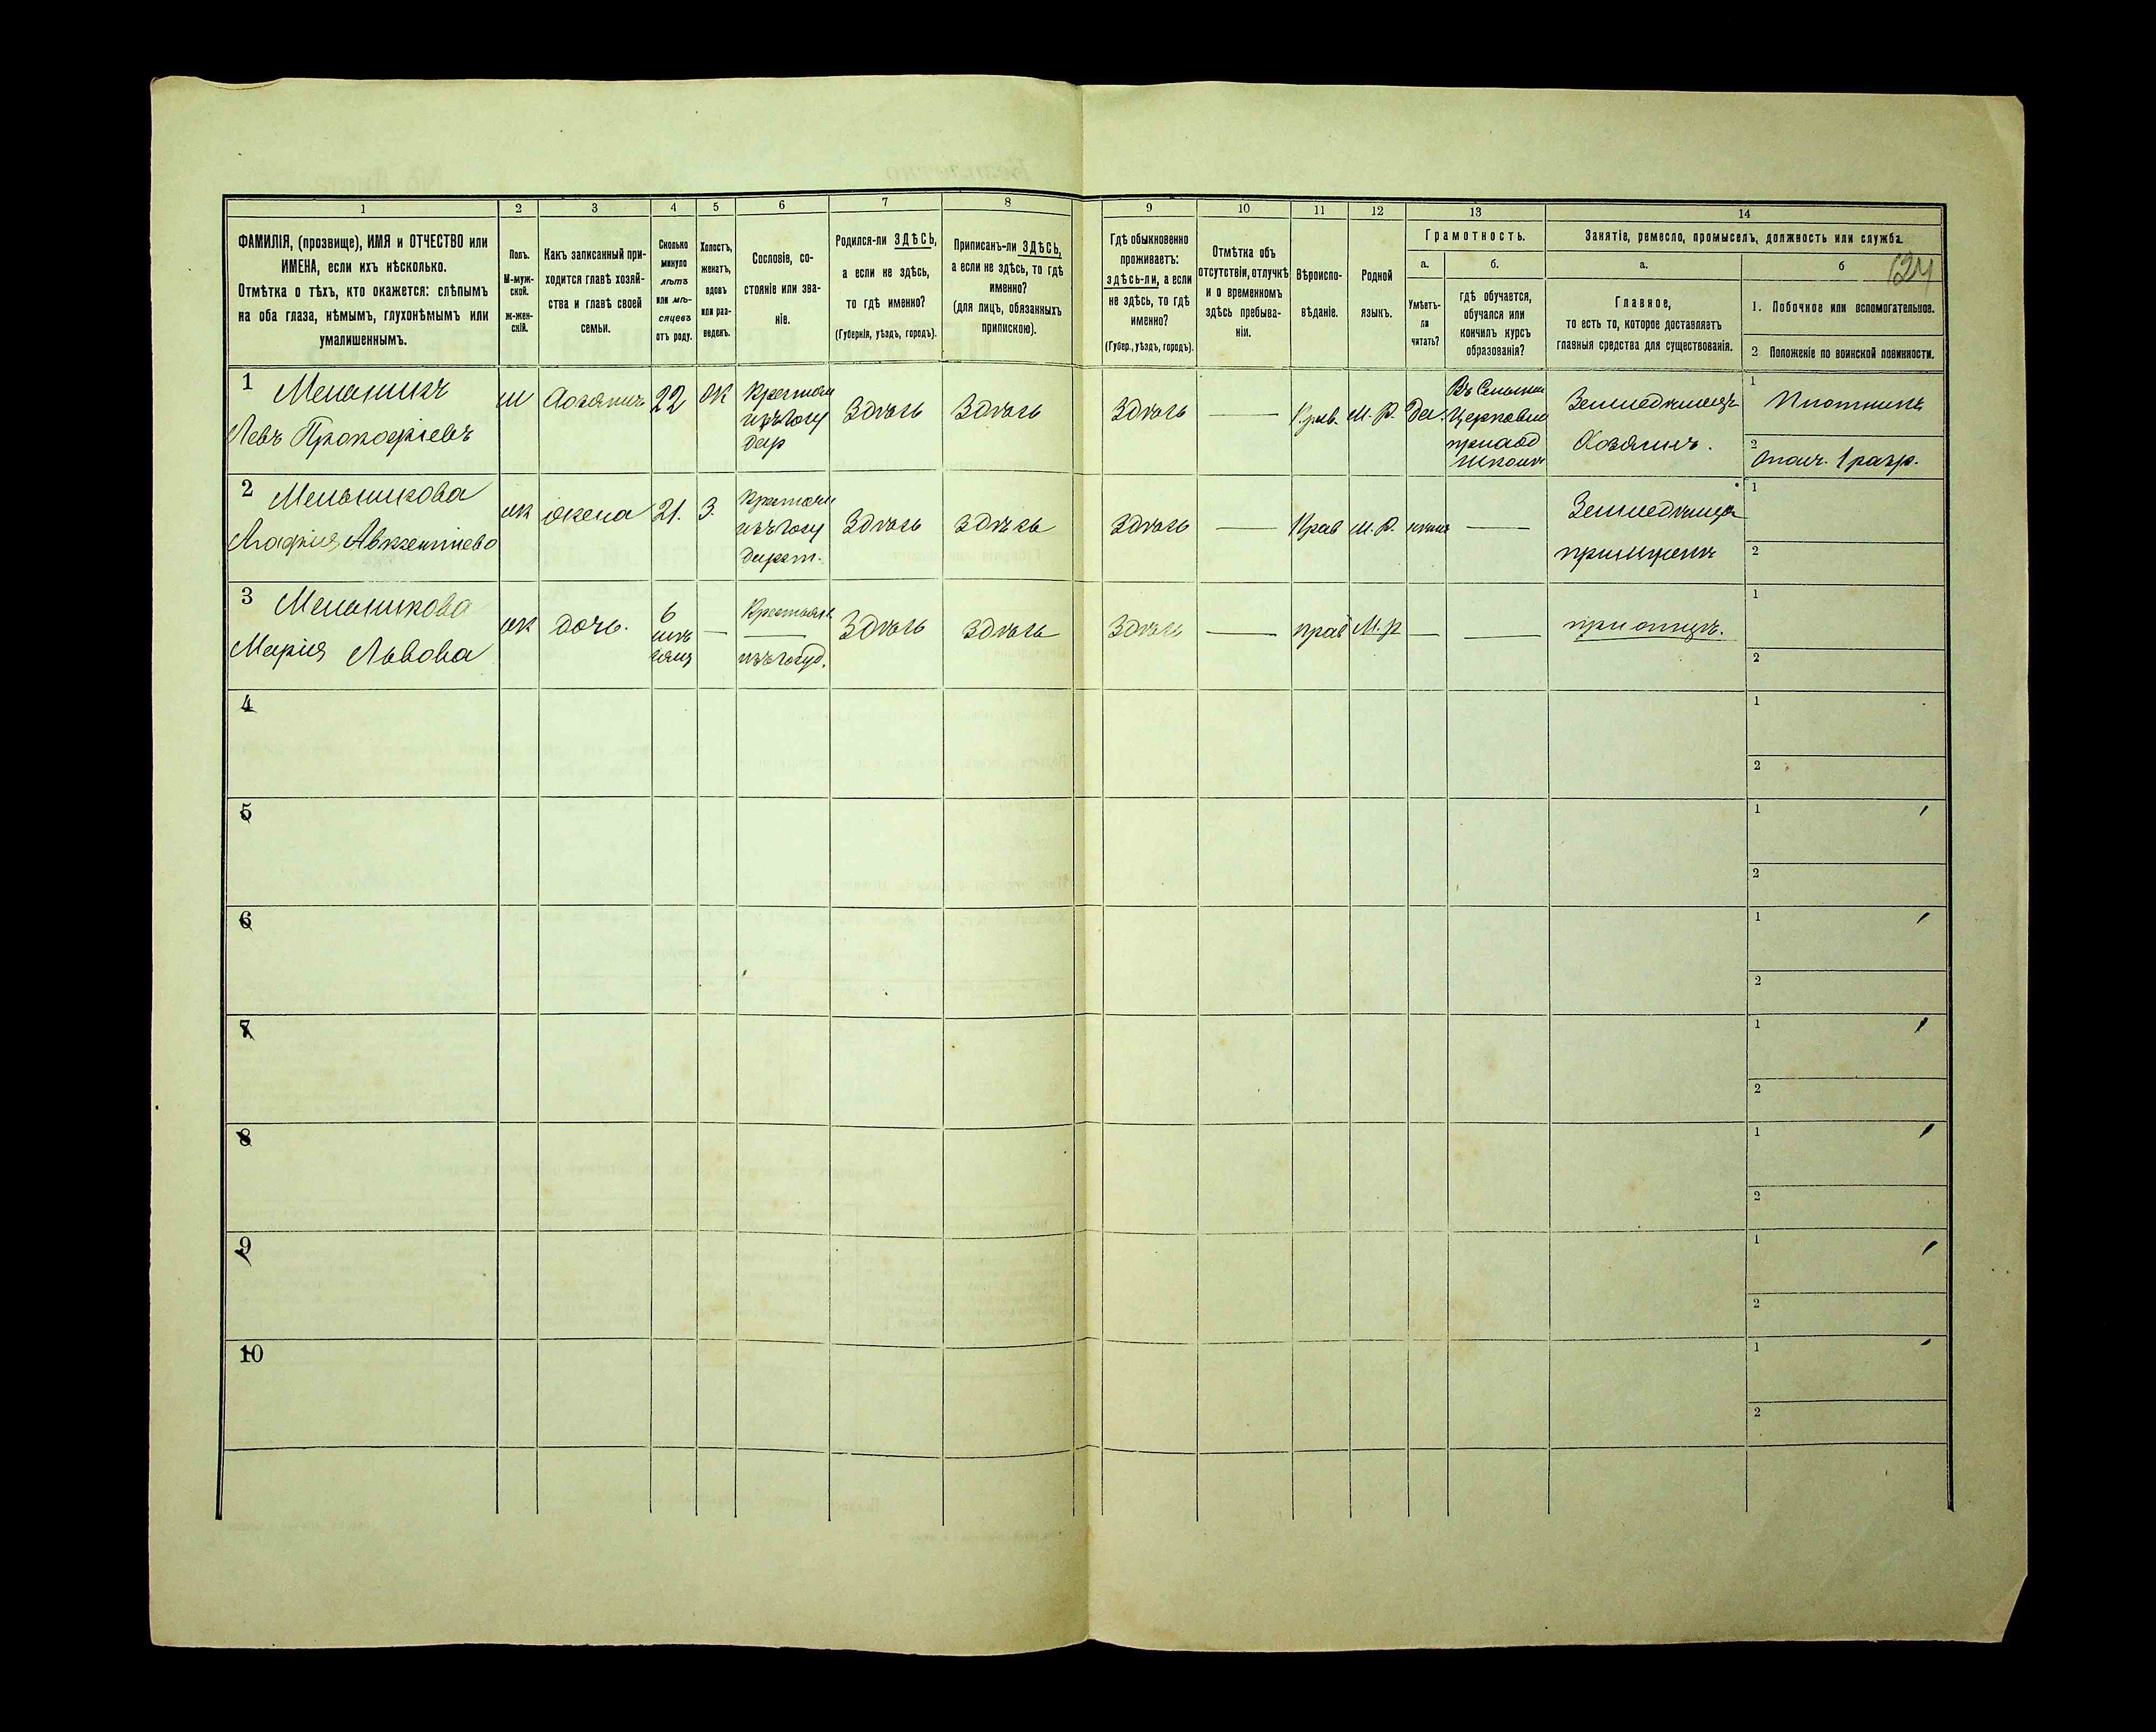 1 2 3 4 5 6 7 8 9 10 11 12 13 14
ФАМИЛІЯ, (прозвище), ИМЯ и ОТЧЕСТВО или
ИМЕНА, если ихъ нѣсколько.
Отмѣтка о тѣхъ, кто окажется: слѣпымъ
на оба глаза, нѣмымъ, глухонѣмымъ или
умалишеннымъ.
Полъ.
М-муж-
ской.
ж-жен-
скій.
Какъ записанный при-
ходится главѣ хозяй-
ства и главѣ своей
семьи.
Сколько
минуло
лѣтъ
или мѣ-
сяцевъ
отъ роду.
Холостъ,
женатъ,
вдовъ
или раз-
веденъ.
Сословіе, со-
стояніе или зва-
ніе.
Родился-ли ЗДѢСЬ,
а если не здѣсь,
то гдѣ именно?
(Губернія, уѣздъ, городъ).
Приписанъ-ли ЗДѢСЬ,
а если не здѣсь, то гдѣ
именно?
(для лицъ, обязанныхъ
припискою).
Гдѣ обыкновенно
проживаетъ:
здѣсь-ли, а если
не здѣсь, то гдѣ
именно?
(Губер., уѣздъ, городъ).
Отмѣтка объ
отсутствіи, отлучкѣ
и о временномъ
здѣсь пребыва-
ніи.
Вѣроиспо-
вѣданіе.
Родной
языкъ.
Грамотность.
а.
Умѣетъ-
ли
читать?
б.
гдѣ обучается,
обучался или
кончилъ курсъ
образованія?
Занятіе, ремесло, промыселъ, должность или служба.
а.
Главное,
то есть то, которое доставляетъ
главныя средства для существованія.
б
124
1. Побочное или вспомогательное.
2 Положеніе по воинской повинности.
1 Мельникъ
Левъ Прокофіевъ
м
Хозяинъ
22
ж
Крестьян
изъ госу
дар
Здѣсь
Здѣсь
Здѣсь
—
Прав.
М. Р.
Да.
Въ
Церковно
приход
школѣ
Земледѣлецъ
Хозяинъ.
1 Плотникъ
2 Ополч. 1 разр.
2 Мельникова
Агафія Авксентіева
ж
жена
21.
З.
Крестьян
изъ госу
дарст.
Здѣсь
здѣсь
Здѣсь
—
Прав
М. Р.
—
Земледѣлица
при мужѣ
1
2
3 Мельникова
Марія Львова
ж
дочь.
6
мѣ
сяц
—
Крестьян.
изъ госуд.
Здѣсь
здѣсь
Здѣсь
—
прав
М. р
—
—
при отцѣ.
1
2
4
1
2
5
1
2
6
1
2
7
1
2
8
1
2
9
1
2
10
1
2